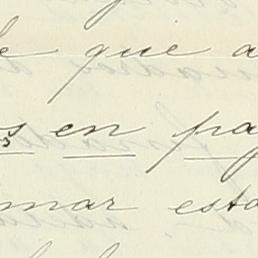 que a
en pa
mar esta